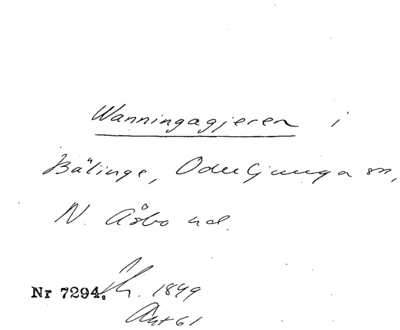 Wanningagjeren i
Bälinge, Oderljunga sn,
N. Åsbo hd.
Nr 7294. Åh. 1849
Akt 61